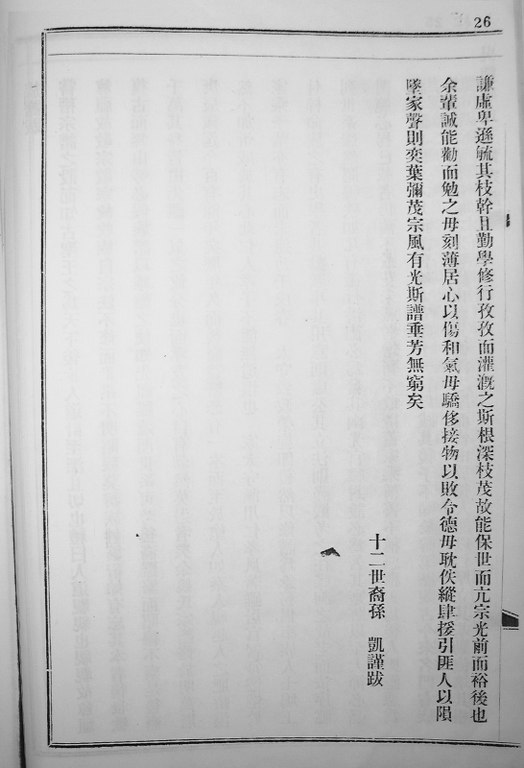 26
謙虛卑遜毓其枝幹且勤學修行孜孜而灌漑之斯根深枝茂故能保世而亢宗光前而裕後也
余輩誠能勸而勉之毋刻薄居心以傷和氣毋驕侈接物以敗令德毋耽佚縱肆援引匪人以隕
墜家聲則奕葉彌茂宗風有光斯譜垂芳無窮矣
十二世裔孫 凱謹跋